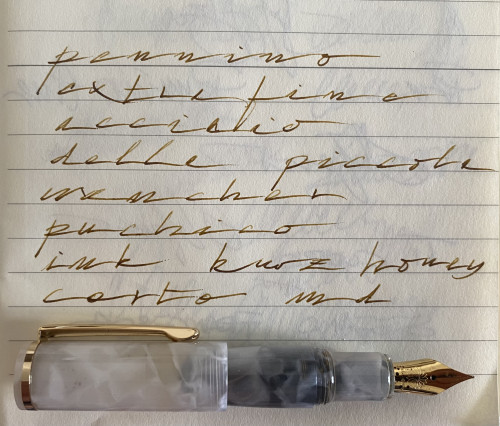 pennino
extra fine
acciaio
della piccola
wancher
puchico
ink kwz honey
carta md